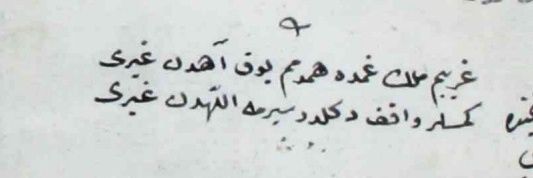 غريبم ملك غمده همدمم يوق آهدن غيرى
كمسلر واقف دكلدر سيرمه اللهدن غيرى